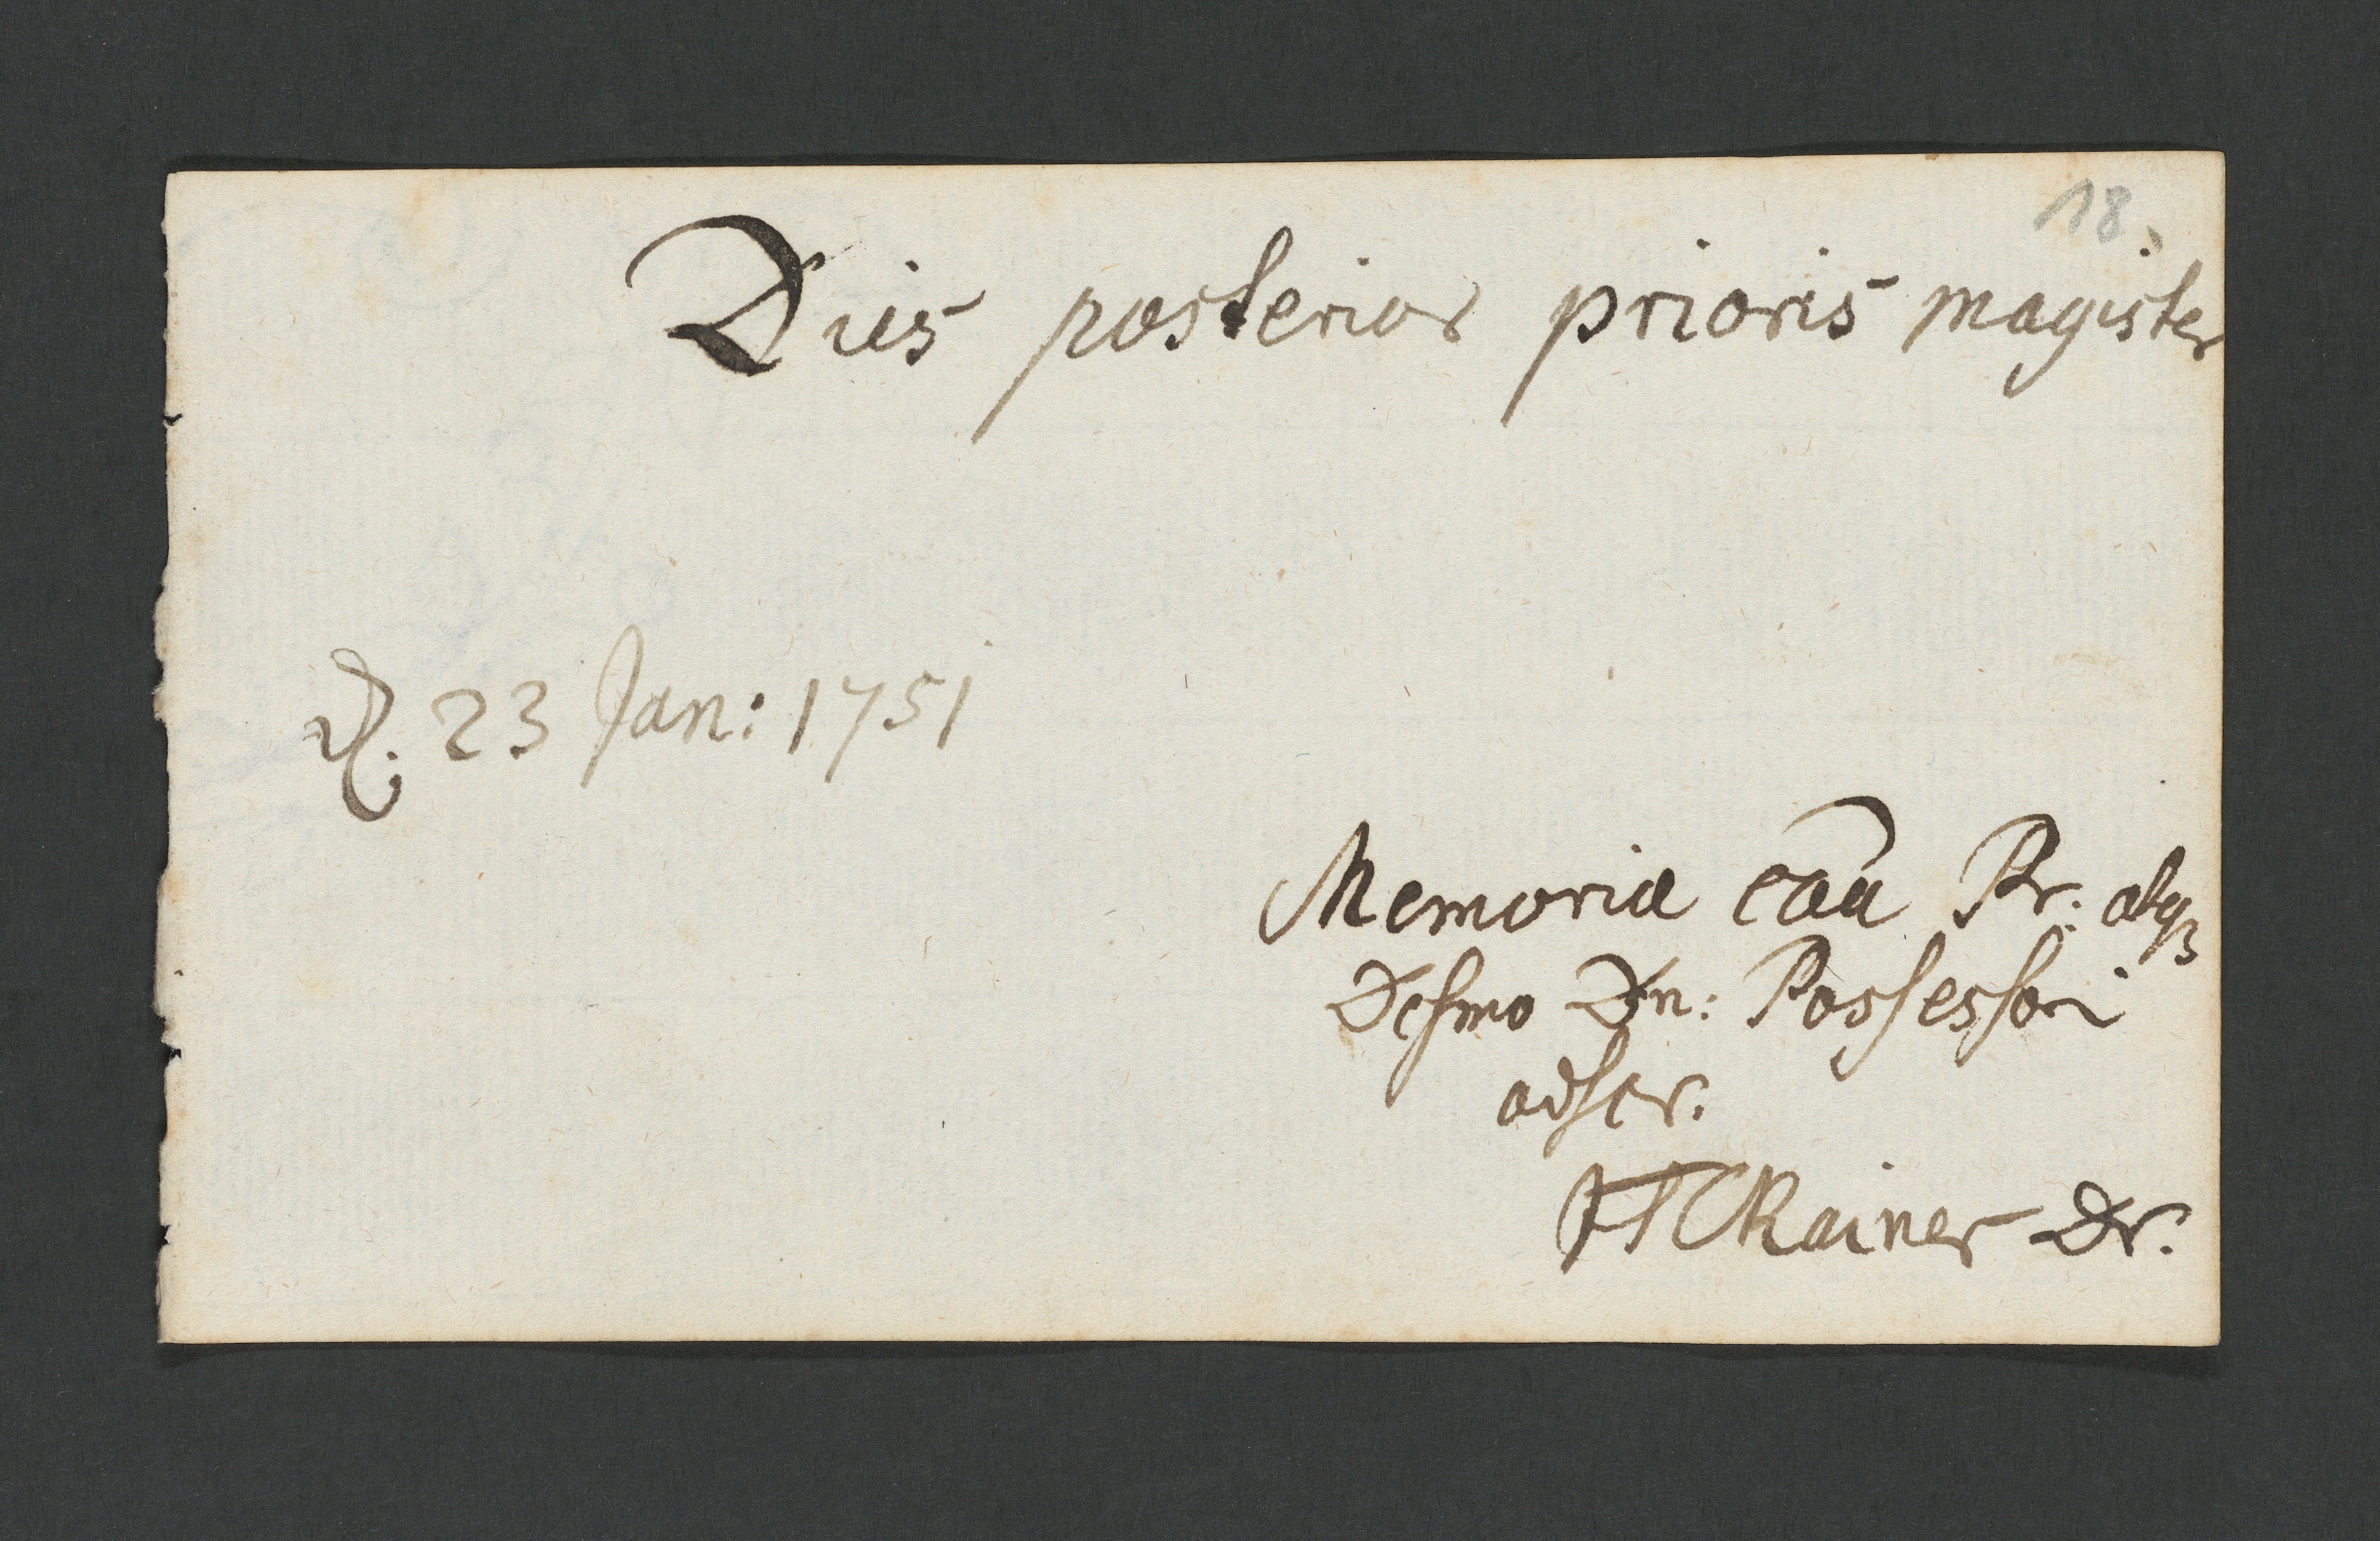 18.
Dies posterior prioris magister
d. 23 Jan: 1751
Memoriæ cãa Pr. atqꝫ
Desmo Dn: Possessori
adscr.
Rainer Dr.